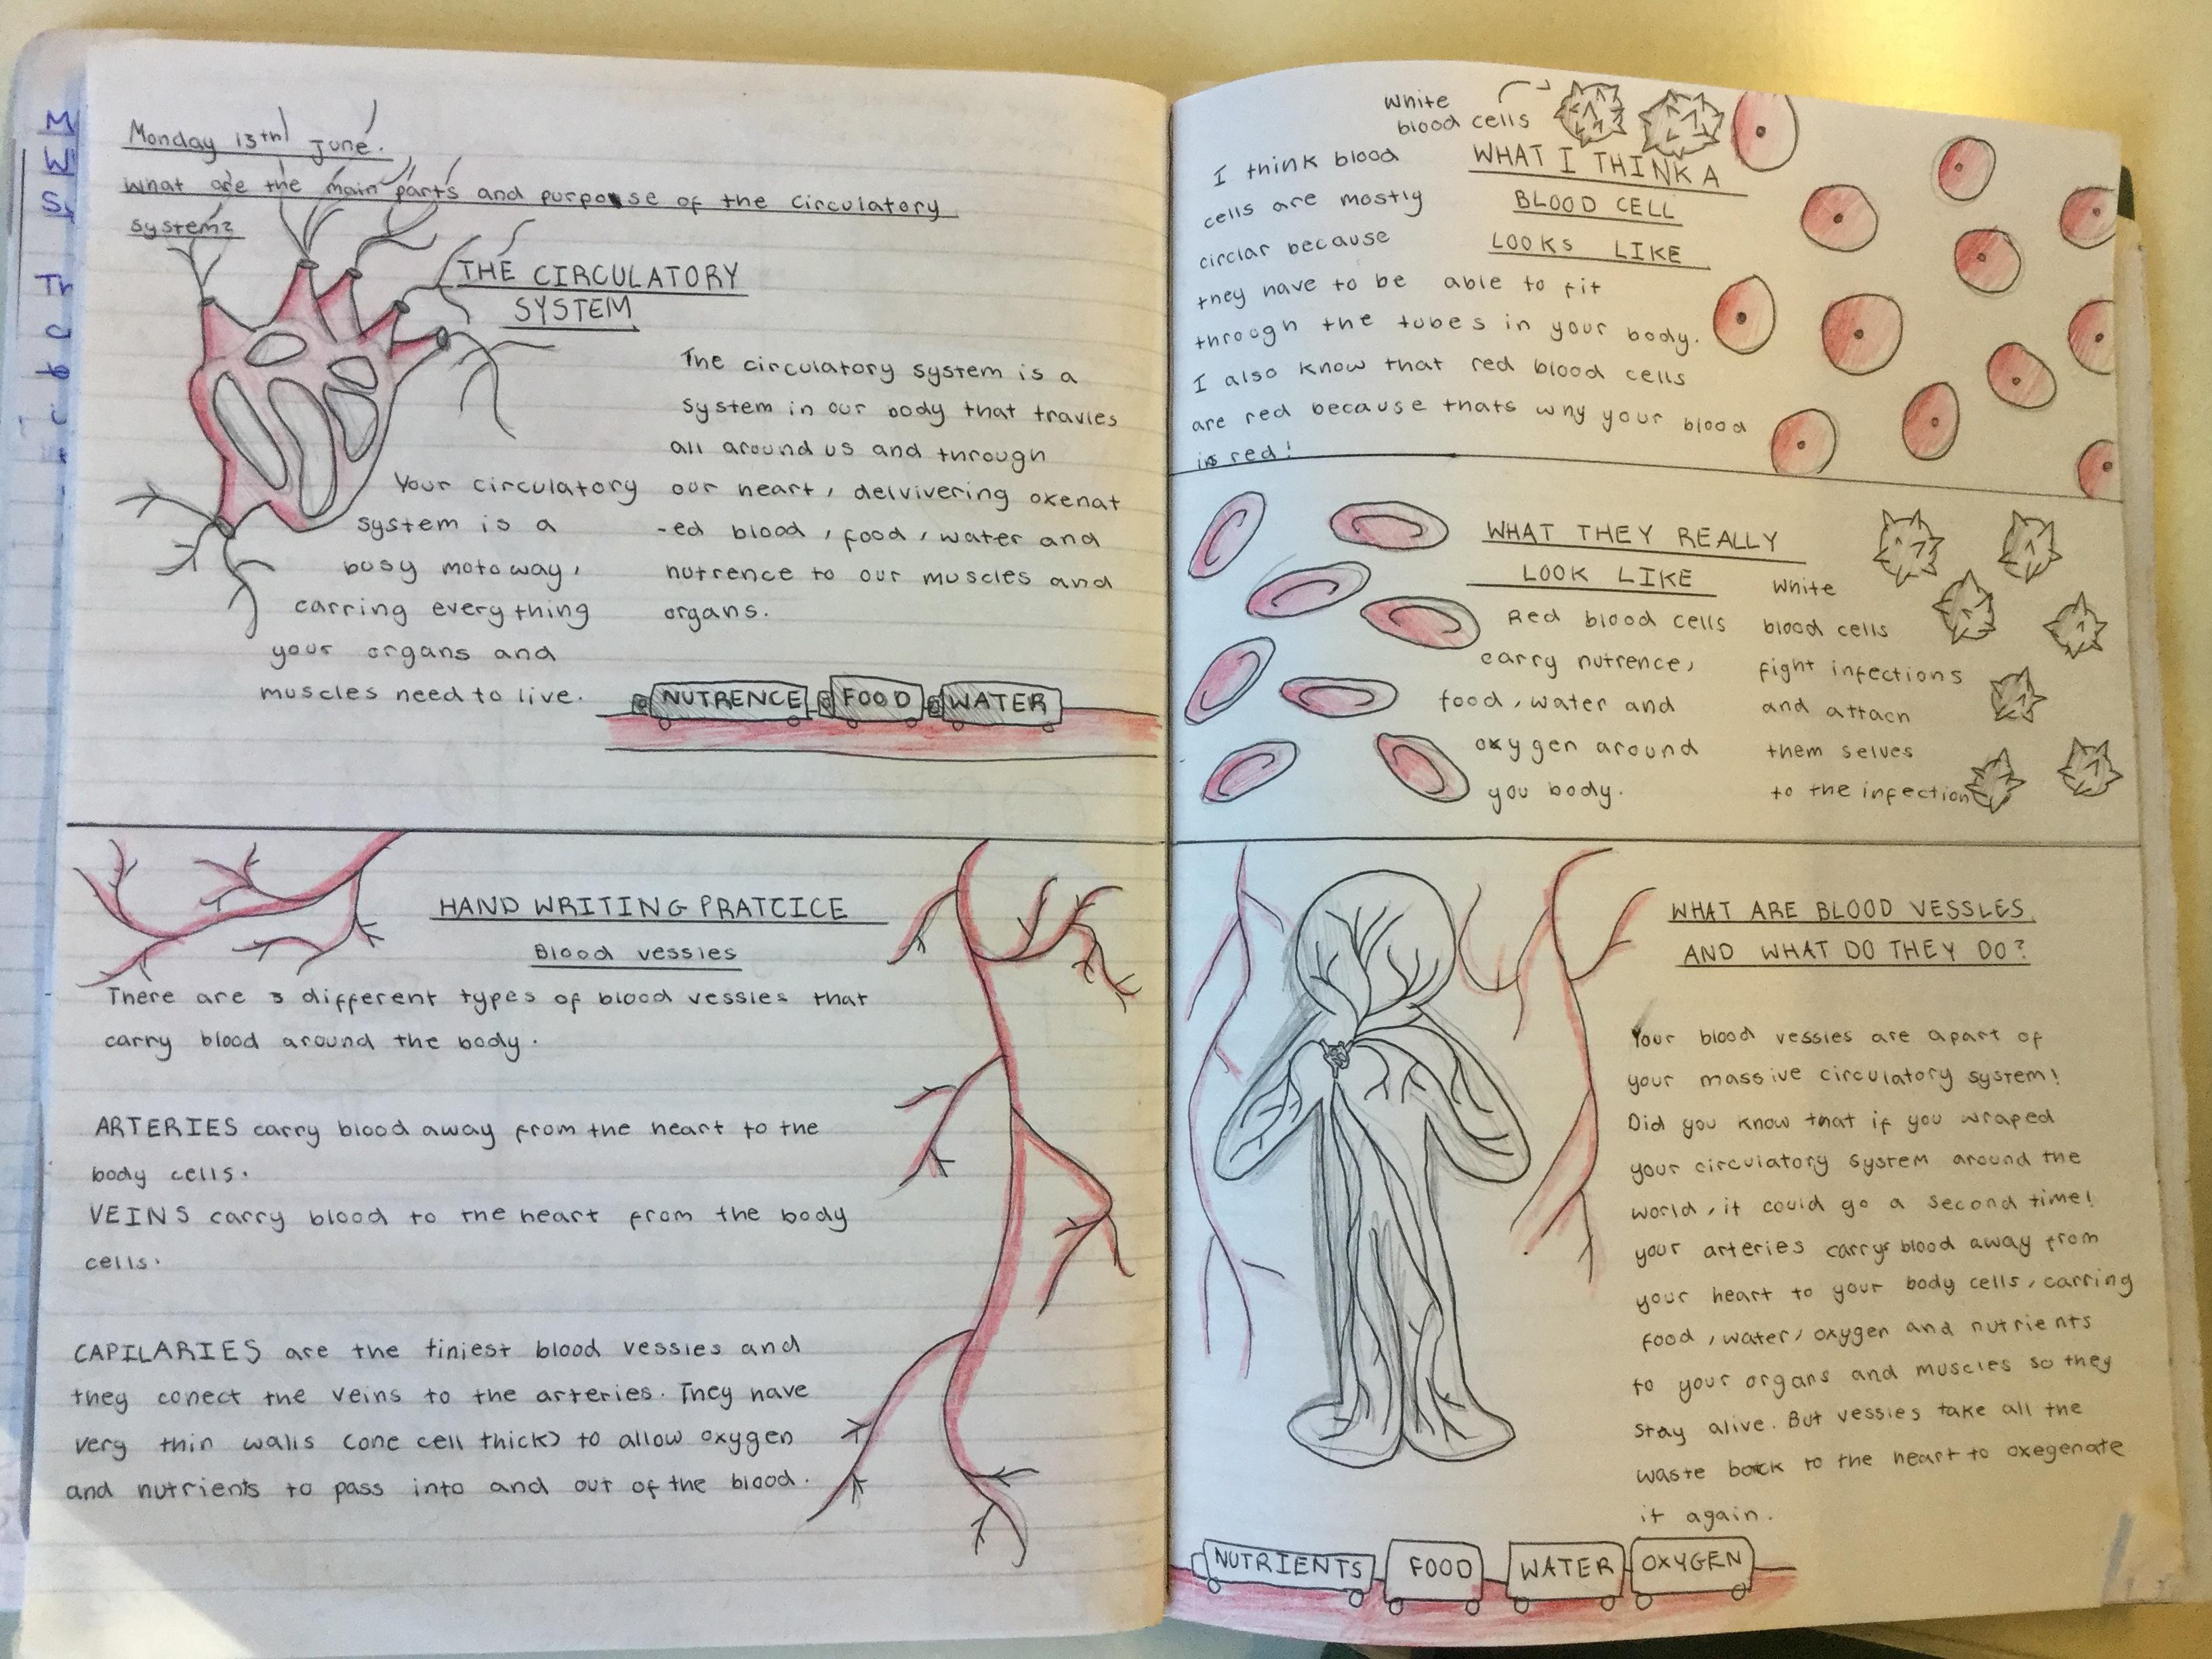 Monday 13th June.
What are the main parts and purpose of the circulatory
system?
THE CIRCULATORY
SYSTEM
The circulatory system is a
system in our body that travles
all around us and through
our heart, delvivering oxenat
-ed blood, food, water and
nutrence to our muscles and
organs.
Your circulatory
system is a
busy motoway,
carring everything
your organs and
muscles need to live.
NUTRENCE FOOD WATER
HAND WRITING PRATCICE
Blood vessles
There are 3 different types of blood vessles that
carry blood around the body.
ARTERIES carry blood away from the heart to the
body cells.
VEINS carry blood to the heart from the body
cells.
CAPILARIES are the tiniest blood vessles and
they conect the veins to the arteries. They have
very thin walls (one cell thick) to allow oxygen
and nutrients to pass into and out of the blood.
White
blood cells
WHAT I THINK A
BLOOD CELL
LOOKS LIKE
I think blood
cells are mostly
circlar because
they have to be able to fit
through the tubes in your body.
I also know that red blood cells
are red because thats why your blood
is red!
WHAT THEY REALLY
LOOK LIKE
Red blood cells
carry nutrence,
food, water and
oxygen around
you body.
White
blood cells
fight infections
and attach
them selves
to the infection
WHAT ARE BLOOD VESSLES
AND WHAT DO THEY DO?
Your blood vessles are apart of
your massive circulatory system!
Did you know that if you wraped
your circulatory system around the
world, it could go a second time!
your arteries carrys blood away from
your heart to your body cells, carring
food, water, oxygen and nutrients
to your organs and muscles so they
stay alive. But vessles take all the
waste back to the heart to oxegenate
it again.
NUTRIENTS FOOD WATER OXYGEN